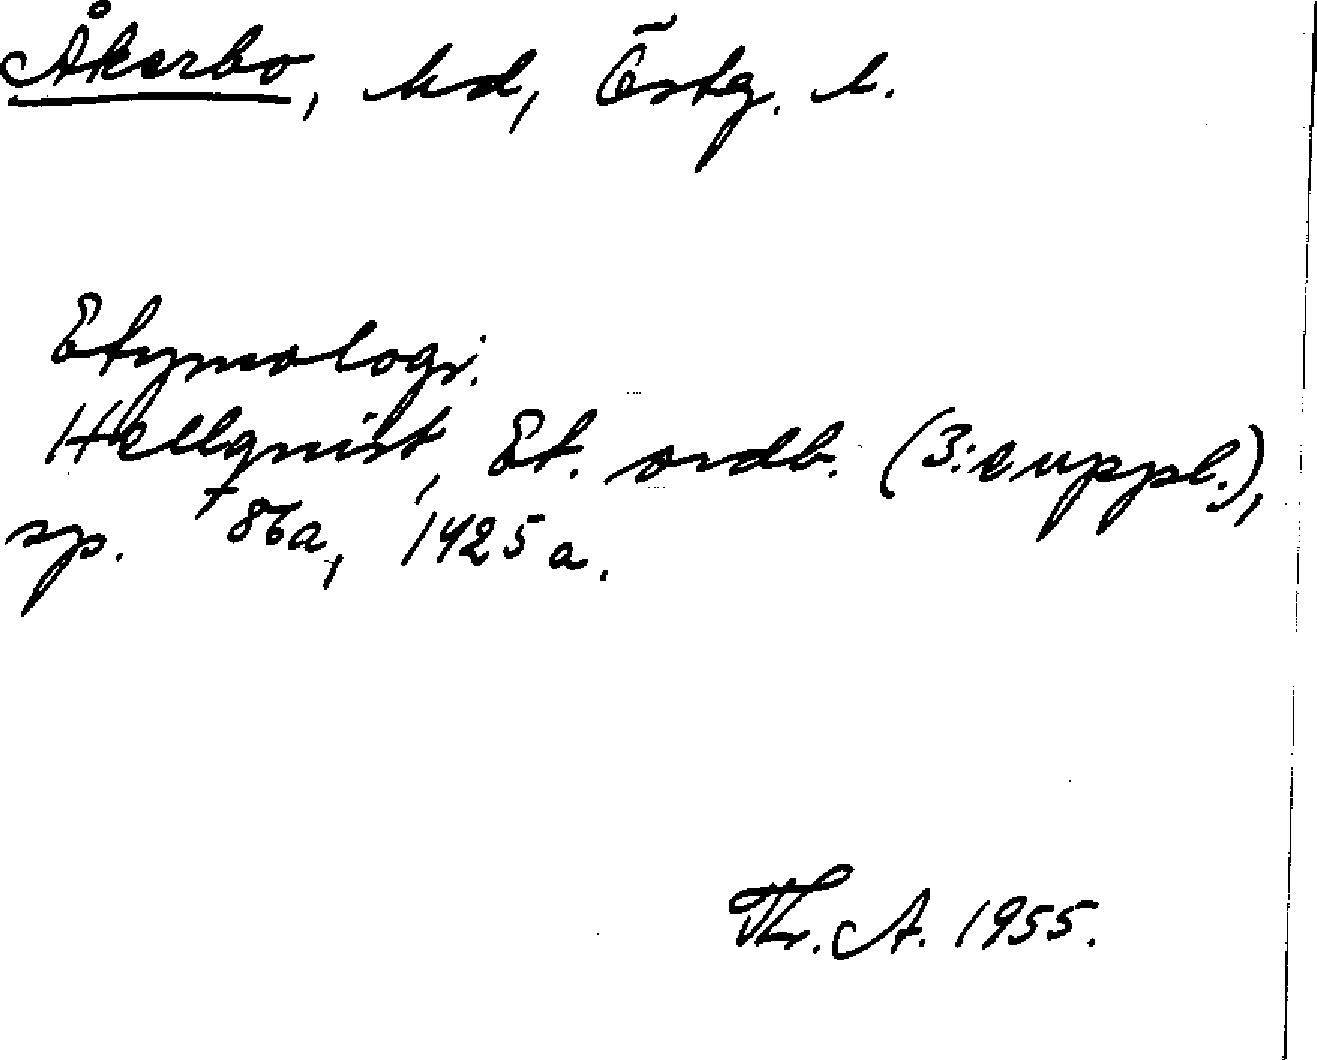 Åkerbo, hd, Östg. l.
Etymologi.
Hellquist, Et. ordb. (3:e uppl.),
sp. +86a, 1425a.
Th. A. 1955.